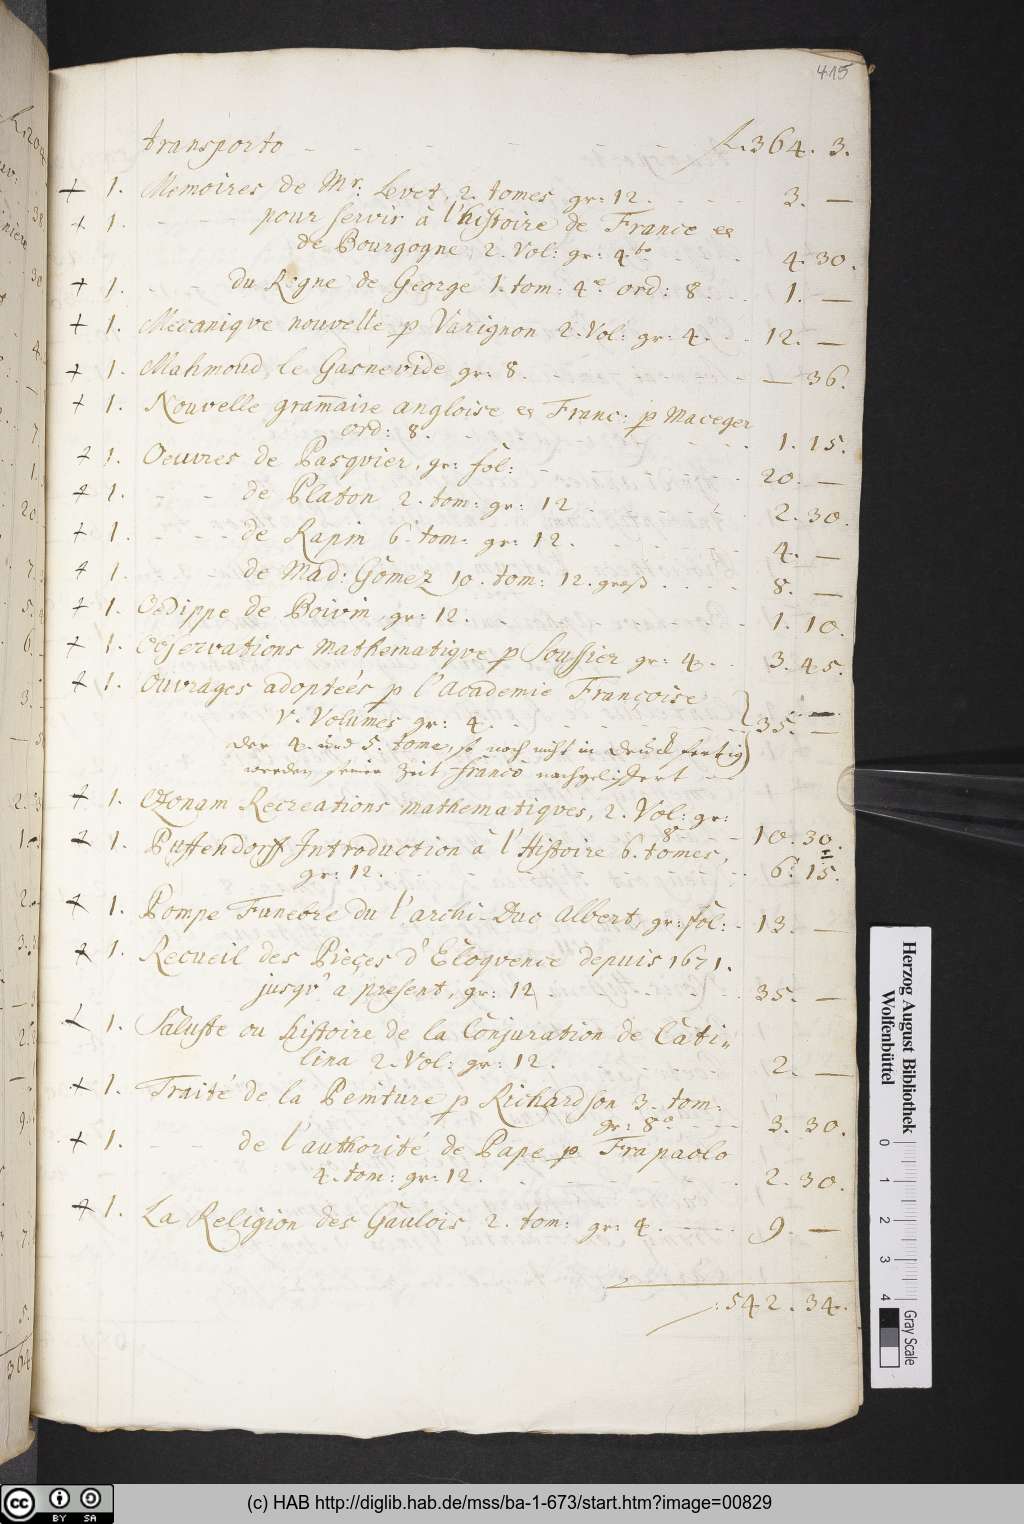 415
transporto f. 364. 3.
+ 1. Memoires de Mr. Levet, 2. tomes gr: 12. 3. —
+ 1. pour servir à l'histoire de France et
de Bourgogne, 2. Vol: gr: 4to 4. 30.
+ 1. du Regne de George 1. tom: 4e ord: 8. 1. —
+ 1. Mecaniqve nouvelle p Varignon 2. Vol: gr: 4. 12. —
+ 1. Mahmoud, le Gasnevide gr: 8. — 36.
+ 1. Nouvelle gram̄aire angloise et Franc: p Maceger
ord: 8. 1. 15.
+ 1. Oeuvres de Pasqvier, gr: fol: 20. —
+ 1. de Platon 2. tom: gr: 12 2. 30.
+ 1. de Rapin 6. tom: gr: 12. 4. —
+ 1. de Mad: Gomez 10. tom: 12. groß 8. —
+ 1. Oedippe de Boivin, gr: 12. 1. 10.
+ 1. Observations mathematiqve p Soussier gr: 4. 3. 45.
+ 1. Ouvrages adopteés p l'Academie Françoise
V. Volumes gr: 4. 35. —
der 4. und 5. tome, so noch nicht in Druck fertig
werden seiner Zeit franco nachgeliffert
+ 1. Ozonam Recreations mathematiques, 2. Vol: gr:
8o 10. 30.
+ 1. Puffendorff Introduction à l'Histoire 6. tomes,
gr: 12. 6. 15.
+ 1. Pompe Funebre du l'archi-Duc Albert, gr: fol: 13. —
+ 1. Recueil des Pièçes d'Eloqvence depuis 1671.
jusqv' a present, gr: 12 35. —
+ 1. Saluste ou histoire de la Conjuration de Cati-
lina 2. Vol: gr: 12. 2. —
+ 1. Traité de la Peinture p Richardson 3. tom:
gr: 8o 3. 30.
+ 1. de l'authorité de Pape p Frapaolo
4. tom: gr: 12. 2. 30.
+ 1. La Religion des Gaulois 2. tom: gr: 4. 9. —
: 542. 34.
Herzog August Bibliothek
Wolfenbüttel
0 1 2 3 4
Gray Scale
cc BY SA
(c) HAB http://diglib.hab.de/mss/ba-1-673/start.htm?image=00829